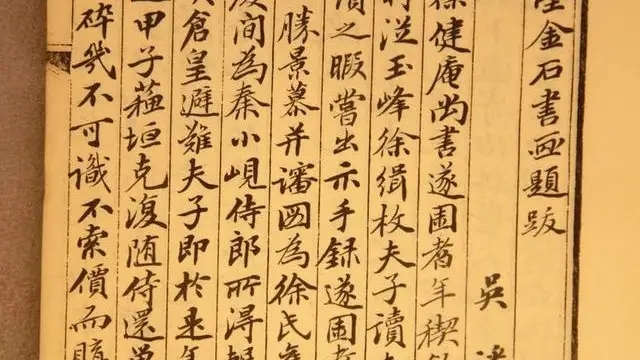 金石書画題跋
吳
健庵尚書遂園耆年禊
從玉峰徐緝枚夫子讀
之暇嘗出示手録遂園
勝景慕并審圖為徐氏
間為秦小峴侍郎所淂
倉皇避難夫子即於是年
甲子蘇垣克復随侍還
碎幾不可識不索價而